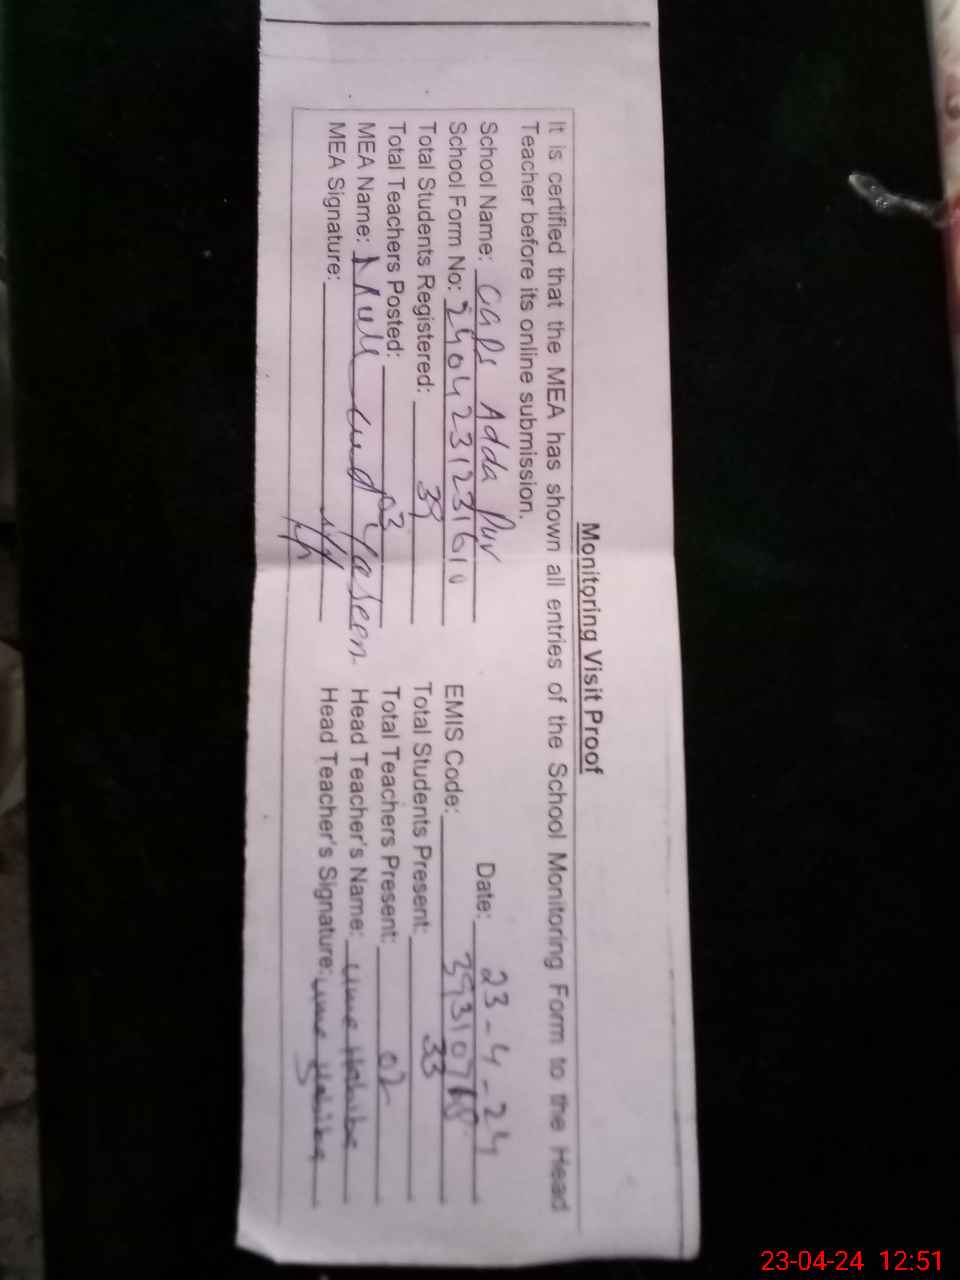 Monitoring Visit Proof
It is certified that the MEA has shown all entries of the School Monitoring Form to the Head
Teacher before its online submission.
School Name: GGPS Adda Pur Date: 23-4-24
School Form No: 2404231231610 EMIS Code: 393107
Total Students Registered: 39 Total Students Present: 33
Total Teachers Posted: 03 Total Teachers Present: 02
MEA Name: Yaseen Head Teacher's Name: Ume Habiba
MEA Signature: Head Teacher's Signature: Ume Habiba
23-04-24 12:51